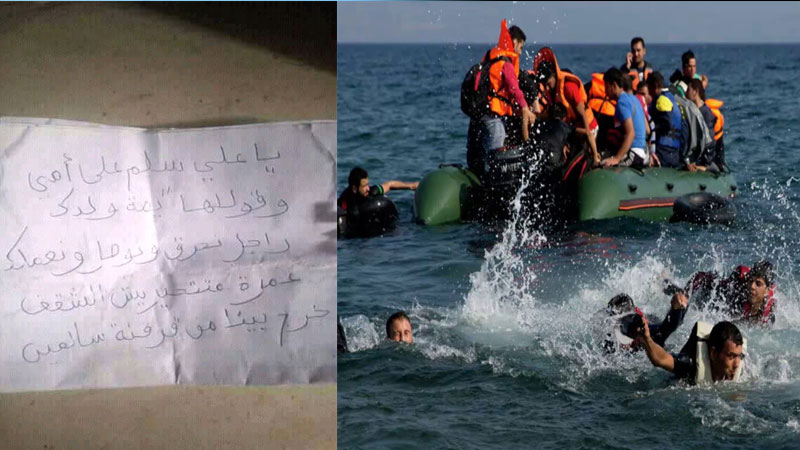 يا علي سلم على أمي
وقوللها "يمة ولدك
راجل نعرق ونعملك
عمرة متتحيريش الشقف
خرج بينا من قرقنة سالمين